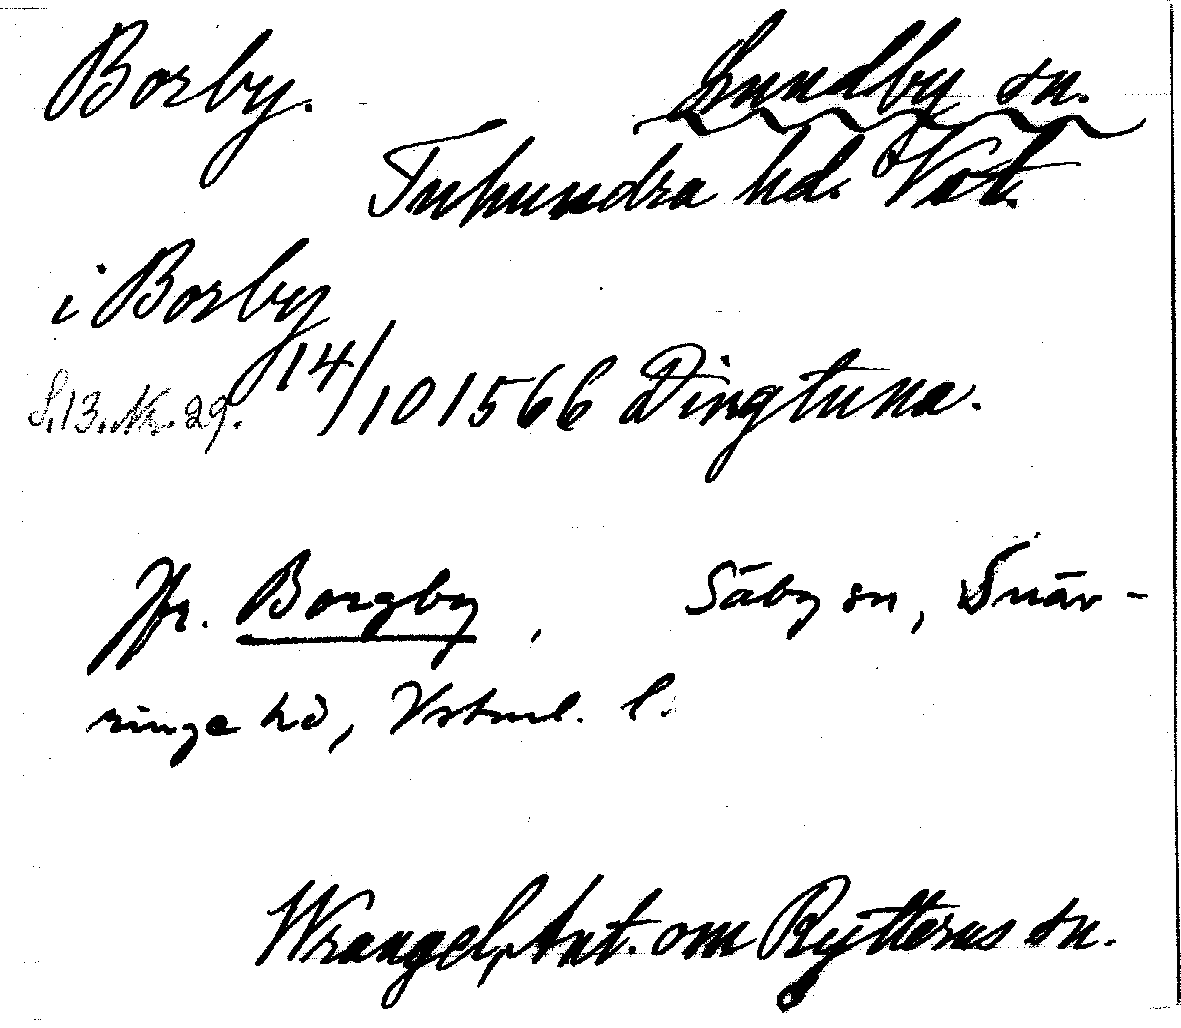 Borby. Lundby sn.
Tuhundra hd. Vstl.
i Borby
14/10 1566 Dingtuna.
S. 13. Nr. 29.
Jfr. Borgby, Säby sn, Snäv-
ringe hd, Vstml. l.
Wrangel, Ant. om Rytterns sn.